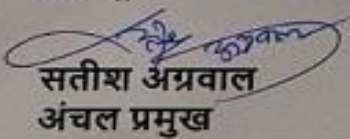 सतीश अग्रवाल
अंचल प्रमुख